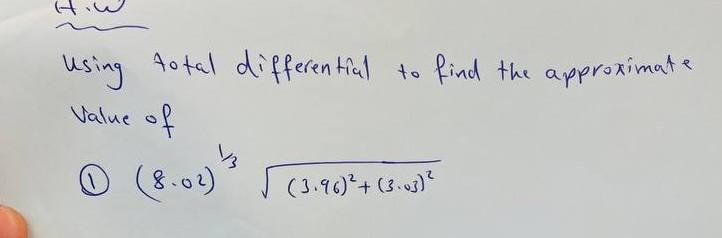 H.W
Using total differential to find the approximate
Value of
① (8.02)^{1/3} √((3.96)²+(3.03)²)